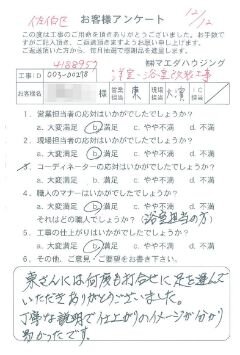 佐伯区 お客様アンケート 12/12
この度は工事のご用命を頂きありがとうございました。お手数で
すがご記入頂き、ご返送頂きますようお願い申し上げます。
ご返送頂いた方から、毎月抽選で感謝品を進呈します。
4188957 ㈱マエダハウジング
工事ID 003-00278 洋室・浴室改修工事
お客様名 様 営業担当 東 工事担当
1. 営業担当者の応対はいかがでしたでしょうか?
a. 大変満足 b. 満足 c. やや不満 d. 不満
2. 現場担当者の応対はいかがでしたでしょうか?
a. 大変満足 b. 満足 c. やや不満 d. 不満
3. コーディネーターの応対はいかがでしたでしょうか?
a. 大変満足 b. 満足 c. やや不満 d. 不満
4. 職人のマナーはいかがでしたでしょうか?
a. 大変満足 b. 満足 c. やや不満 d. 不満
それはどの職人でしょうか?(浴室担当の方)
5. 工事の仕上がりはいかがでしたでしょうか?
a. 大変満足 b. 満足 c. やや不満 d. 不満
6. その他、ご意見・ご要望をお書き下さい。
東さんには何度も打合せに足を運んで
いただきありがとうございました。
丁寧な説明で仕上がりのイメージが分かり
易かったです。